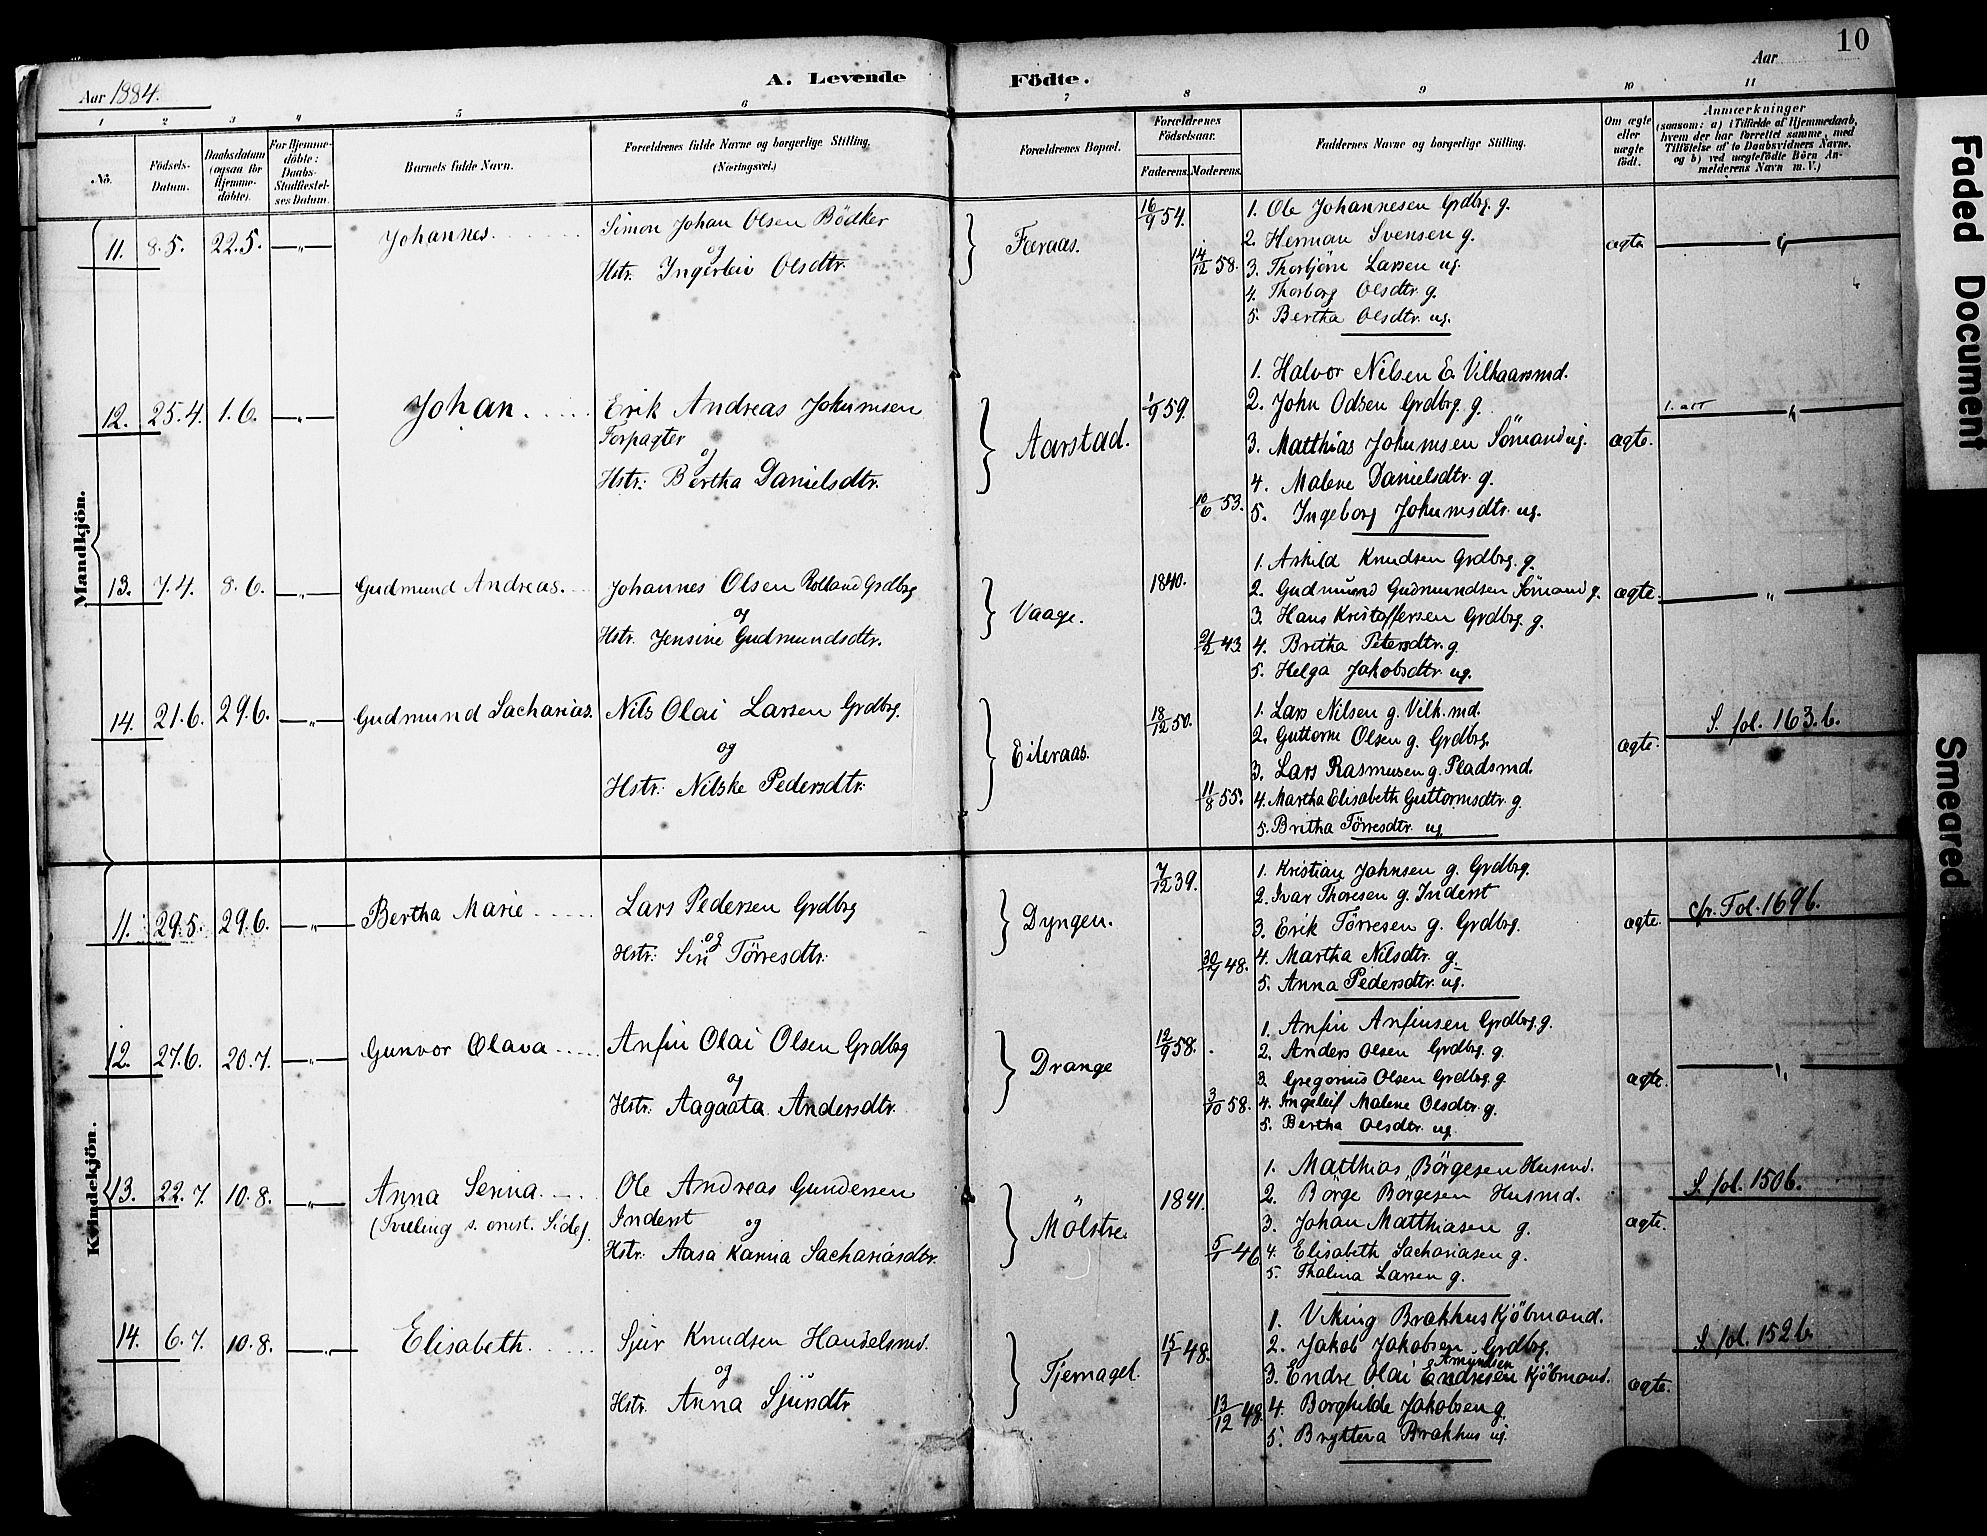 10
Aar 1884.
A. Levende Födte.
Aar
1 2 3 4 5 6 7 8 9 10 11
No.
Födsels-Datum.
Daabsdatum (ogsaa for Hjemmedöbte).
For Hjemmedöbte: Daabs-Stadfæstelses Datum.
Barnets fulde Navn.
Forældrenes fulde Navne og borgerlige Stilling. (Næringsvei.)
Forældrenes Bopæl.
Forældrenes Födselsaar.
Faderens. Moderens.
Faddernes Navne og borgerlige Stilling.
Om ægte eller uægte födt.
Anmærkninger (saasom: a) i Tilfælde af Hjemmedaab, hvem der har forrettet samme, med Tilföielse af to Daabsvidners Navne, og b) ved uægtefödte Börn Anmelderens Navn m.V.)
Mandkjön.
11. 8.5. 22.5. —„— Johannes.
Simon Johan Olsen Bödker
og
Hstr. Ingerlein Olsdtr.
Færaas.
16/9 54.
14/12 58.
1. Ole Johannesen Grdbrg. g.
2. Herman Svensen g.
3. Thorbjörn Larsen ug.
4. Thorborg Olsdtr. g.
5. Bertha Olsdtr. ug.
ægte
12. 25.4. 1.6. —„— Johan.
Erik Andreas Johnnsen
Forpagter
og
Hstr: Bertha Danielsdtr.
Aarstad.
1/9 59.
10/6 53.
1. Halvor Nilsen E. Vilkaarsmd.
2. John Odsen Grdbrg. g.
3. Matthias Johnnsen Sömand ug.
4. Malene Danielsdtr. g.
5. Ingeborg Johnnsdtr. ug.
ægte.
1. att
13. 7.4. 8.6. —„— Gudmund Andreas.
Johannes Olsen Rolland Grdbrg
og
Hstr. Jensine Gudmundsdtr.
Vaage.
1840.
21/2 43.
1. Askild Knudsen Grdbrg. g.
2. Gudmund Gudmundsen Sömand g.
3. Hans Kristoffersen Grdbrg. g.
4. Britha Petersdtr. g.
5. Helga Jakobsdtr. ug.
ægte.
14. 21.6. 29.6. —„— Gudmund Sacharias.
Nils Olai Larsen Grdbrg.
og
Hstr: Nilske Pedersdtr.
Eileraas.
18/12 50.
11/8 55.
1. Lars Nilsen g. Vilk.md.
2. Guttorm Olsen g. Grdbrg.
3. Lars Rasmusen g. Pladsmd.
4. Martha Elisabeth Guttormsdtr. g.
5. Britha Törresdtr. ug.
ægte.
S. fol. 163.b.
Kvindekjön.
11. 29.5. 29.6. —„— Bertha Marie
Lars Pedersen Grdbrg
og
Hstr: Siri Törresdtr.
Dyngen.
7/12 39.
30/7 48.
1. Kristian Johnsen g. Grdbrg.
2. Ivar Thoresen g. Inderst
3. Erik Törresen g. Grdbrg.
4. Martha Nilsdtr. g.
5. Anna Pedersdtr. ug.
ægte.
cfr. Fol. 169b.
12. 27.6. 20.7. —„— Gunvor Olava
Anfin Olai Olsen Grdbrg
og
Hstr: Aagaata Andersdtr.
Drange
12/9 58.
3/10 58.
1. Anfin Anfinsen Grdbrg. g.
2. Anders Olsen Grdbrg. g.
3. Gregorius Olsen Grdbrg. g.
4. Ingeleif Malene Olsdtr. g.
5. Bertha Olsdtr. ug.
ægte.
13. 22.7. 10.8. —„— Anna Serina.
(Tvilling s. omst. Side).
Ole Andreas Gundersen
Inderst og
Hstr. Aasa Karina Sachariasdtr.
Mölstre.
1841.
5/1 46
1. Matthias Börgesen Husmd.
2. Börge Börgesen Husmd.
3. Johan Matthiasen g.
4. Elisabeth Sachariasen g.
5. Thalina Larsen g.
ægte.
S. fol. 150b.
14. 6.7. 10.8. —„— Elisabeth.
Sjur Knudsen Handelsmd.
og
Hstr. Anna Sjursdtr
Tjernagel.
15/7 48.
13/12 48.
1. Viking Brakhus Kjöbmand.
2. Jakob Jakobsen Grdbrg.
Amundsen
3. Endre Olai Endresen Kjöbmand.
4. Borghilde Jakobsen g.
5. Brytteva Brakhus ug.
ægte.
S. fol. 152b.
Faded Document
Smeared